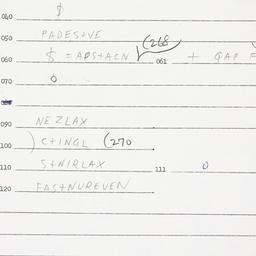 010 $
050 PADES+VE
060 $ = APS+ACN (268 061 + QAP F
070 0
090 NEZLAX
100 ) C+INGL (270
110 S+NIRLAX 111 0
120 FAS+NUREVEN